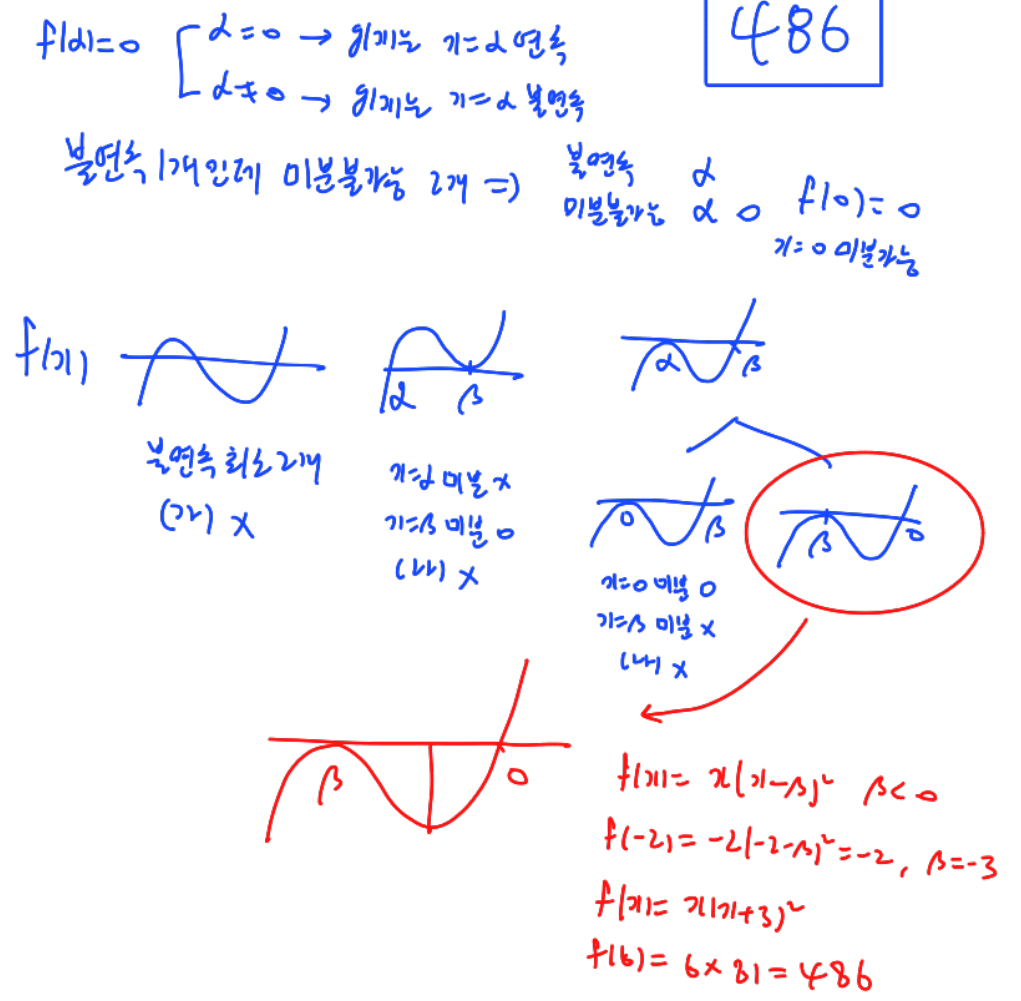 f(α)=0 α=0 → g(x)는 x=α 연속
α≠0 → g(x)는 x=α 불연속
486
불연속 1개인데 미분불가능 2개 ⇒ 불연속 α
미분불가능 α 0 f(0)=0
x=0 미분가능
f(x)
α β
α β
불연속 최소 2개
(가) x
x=α 미분 x
x=β 미분 o
(나) x
0 β
β 0
x=0 미분 o
x=β 미분 x
(나) x
β 0
f(x)= x(x-β)² β<0
f(-2)= -2(-2-β)²=-2, β=-3
f(x)= x(x+3)²
f(6)= 6×81=486